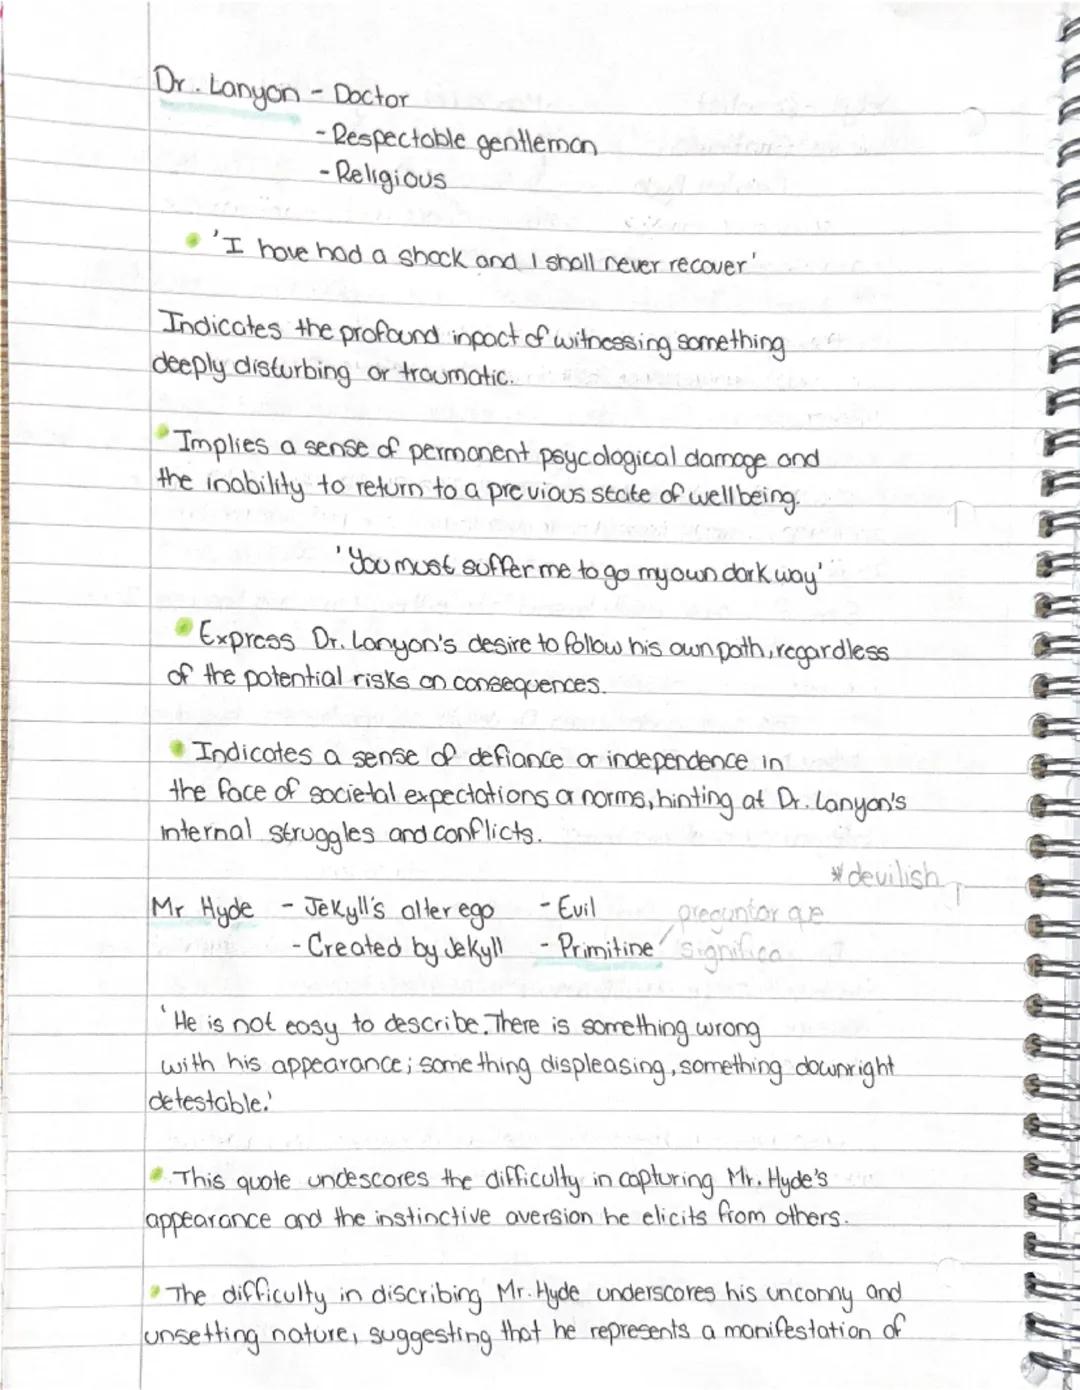 Dr. Lanyon - Doctor
- Respectable gentleman
- Religious
'I have had a shock and I shall never recover'
Indicates the profound inpact of witnessing something
deeply disturbing or traumatic.
Implies a sense of permanent psycological damage and
the inability to return to a previous state of wellbeing.
'You must suffer me to go my own dark way'
Express Dr. Lanyon's desire to follow his own path, regardless
of the potential risks on consequences.
Indicates a sense of defiance or independence in
the face of societal expectations or norms, hinting at Dr. Lanyon's
internal struggles and conflicts.
* devilish
Mr Hyde - Jekyll's alter ego - Evil preguntar que
- Created by Jekyll - Primitine significa
'He is not easy to describe. There is something wrong
with his appearance; something displeasing, something downright
detestable.'
This quote undescores the difficulty in capturing Mr. Hyde's
appearance and the instinctive aversion he elicits from others.
The difficulty in discribing Mr. Hyde underscores his uncanny and
unsetting nature, suggesting that he represents a manifestation of